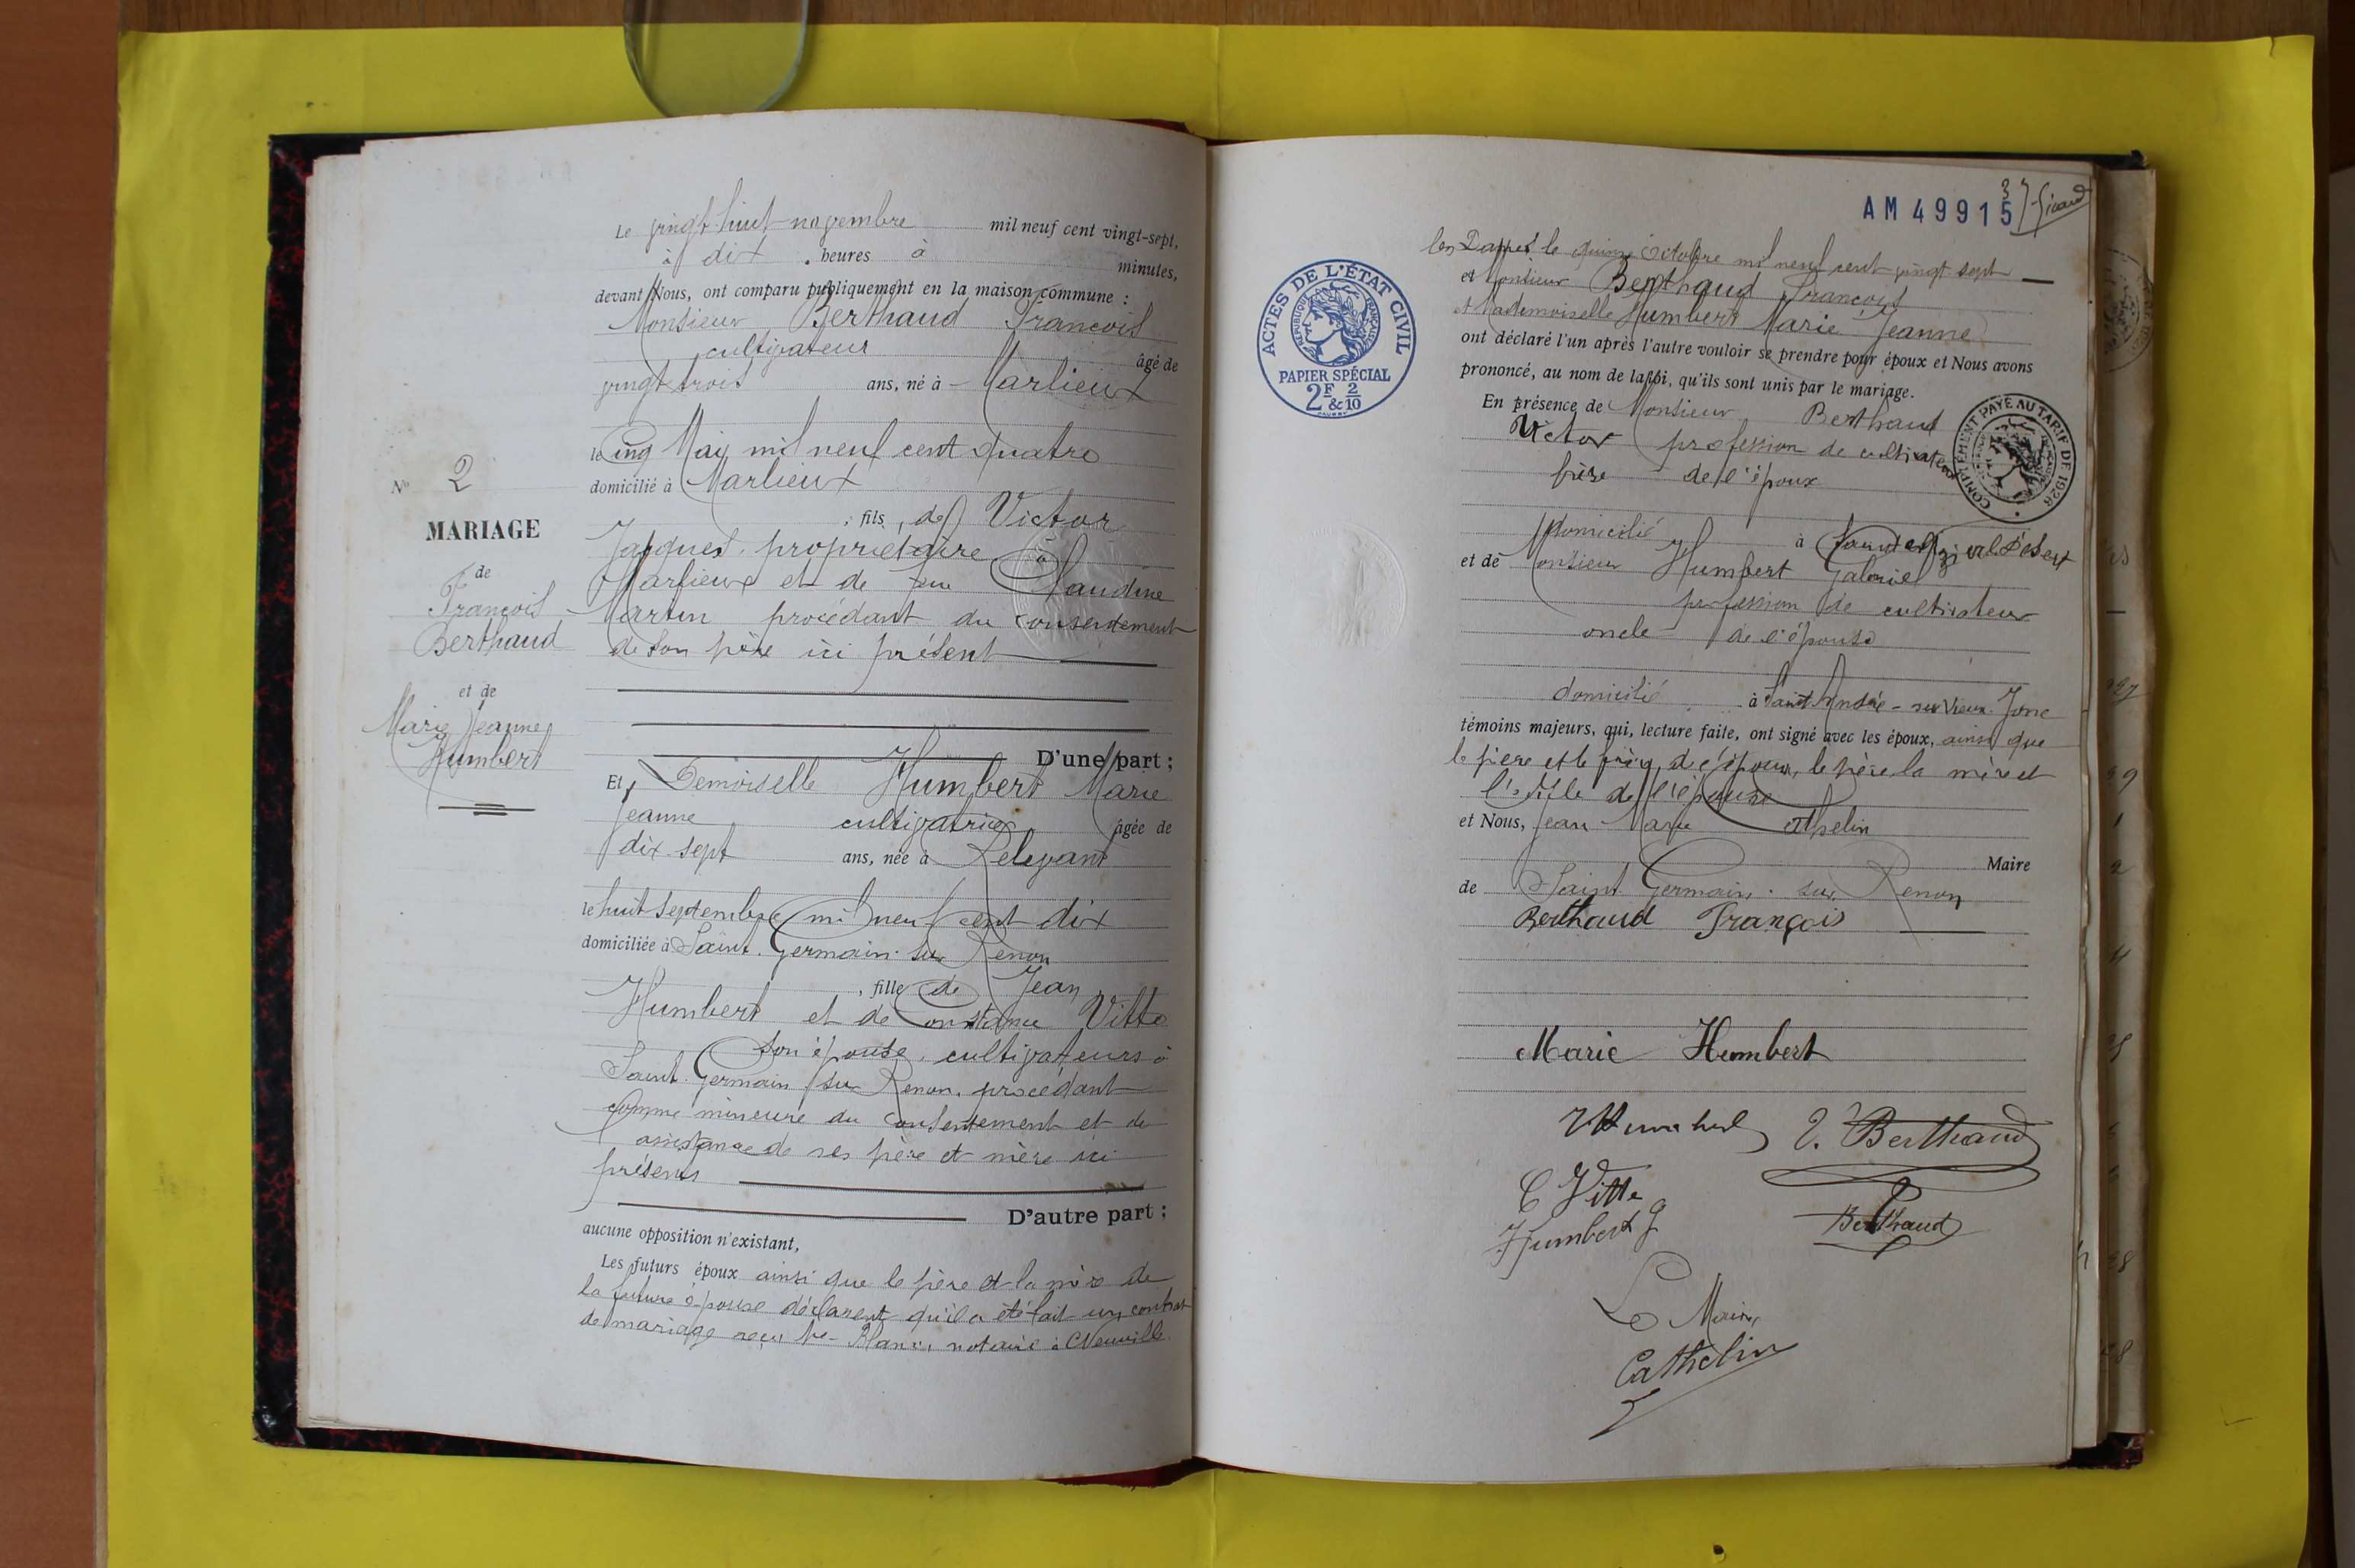 Le vingt huit novembre mil neuf cent vingt-sept,
à dix heures à minutes,
devant Nous, ont comparu publiquement en la maison commune :
Monsieur Berthaud François
cultivateur âgé de
vingt trois ans, né à Marlieux
le cinq Mai mil neuf cent quatre
domicilié à Marlieux
, fils de Victor
Jacques propriétaire à
Marlieux et de feu Claudine
Martin procédant du consentement
de son père ici présent
D'une part ;
N° 2
MARIAGE
de
François
Berthaud
et de
Marie Jeanne
Humbert
Et Demoiselle Humbert Marie
Jeanne cultivatrice âgée de
dix-sept ans, née à Relevant
le huit septembre mil neuf cent dix
domiciliée à Saint Germain sur Renon
, fille de Jean
Humbert et de Constance Vitte
son épouse, cultivateurs à
Saint Germain sur Renon, procédant
comme mineure du consentement et de
assistance de ses père et mère ici
présents
D'autre part ;
aucune opposition n'existant,
Les futurs époux ainsi que le père et la mère de
la future épouse déclarent qu'il a été fait un contrat
de mariage reçu Me Blanc, notaire à Neuville
AM 49915
3
les Dames le quinze Octobre mil neuf cent vingt sept
et Monsieur Berthaud François
et Mademoiselle Humbert Marie Jeanne
ont déclaré l'un après l'autre vouloir se prendre pour époux et Nous avons
prononcé, au nom de la loi, qu'ils sont unis par le mariage.
En présence de Monsieur Berthaud
Victor profession de cultivateur
frère de l'époux
domicilié à
et de Monsieur Humbert Gabriel
profession de cultivateur
oncle de l'épouse
domicilié à Saint André-sur Vieux Jonc
témoins majeurs, qui, lecture faite, ont signé avec les époux, ainsi que
le père et le frère de l'époux, le père la mère et
l'oncle de l'épouse
et Nous, Jean-Marie Cathelin
Maire
de Saint Germain sur Renon
Berthaud François
Marie Humbert
Humbert V. Berthaud
C Vitte
Humbert g Berthaud
Le Maire,
Cathelin
ACTES DE L'ÉTAT CIVIL
RÉPUBLIQUE FRANÇAISE
PAPIER SPÉCIAL
2F & 2/10
COMPLÉMENT PAYÉ AU TARIF DE 1926